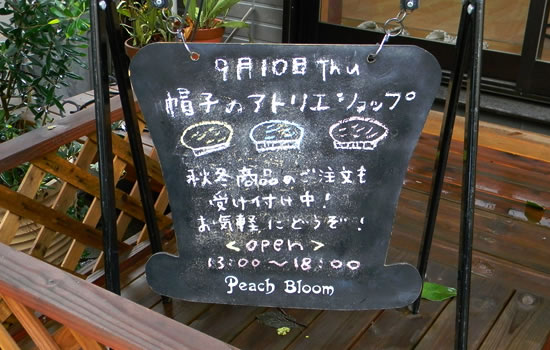 9月10日 Thu
帽子のアトリエショップ
秋冬商品のご注文も
受け付け中！
お気軽にどうぞ！
<open>
13:00～18:00
Peach Bloom